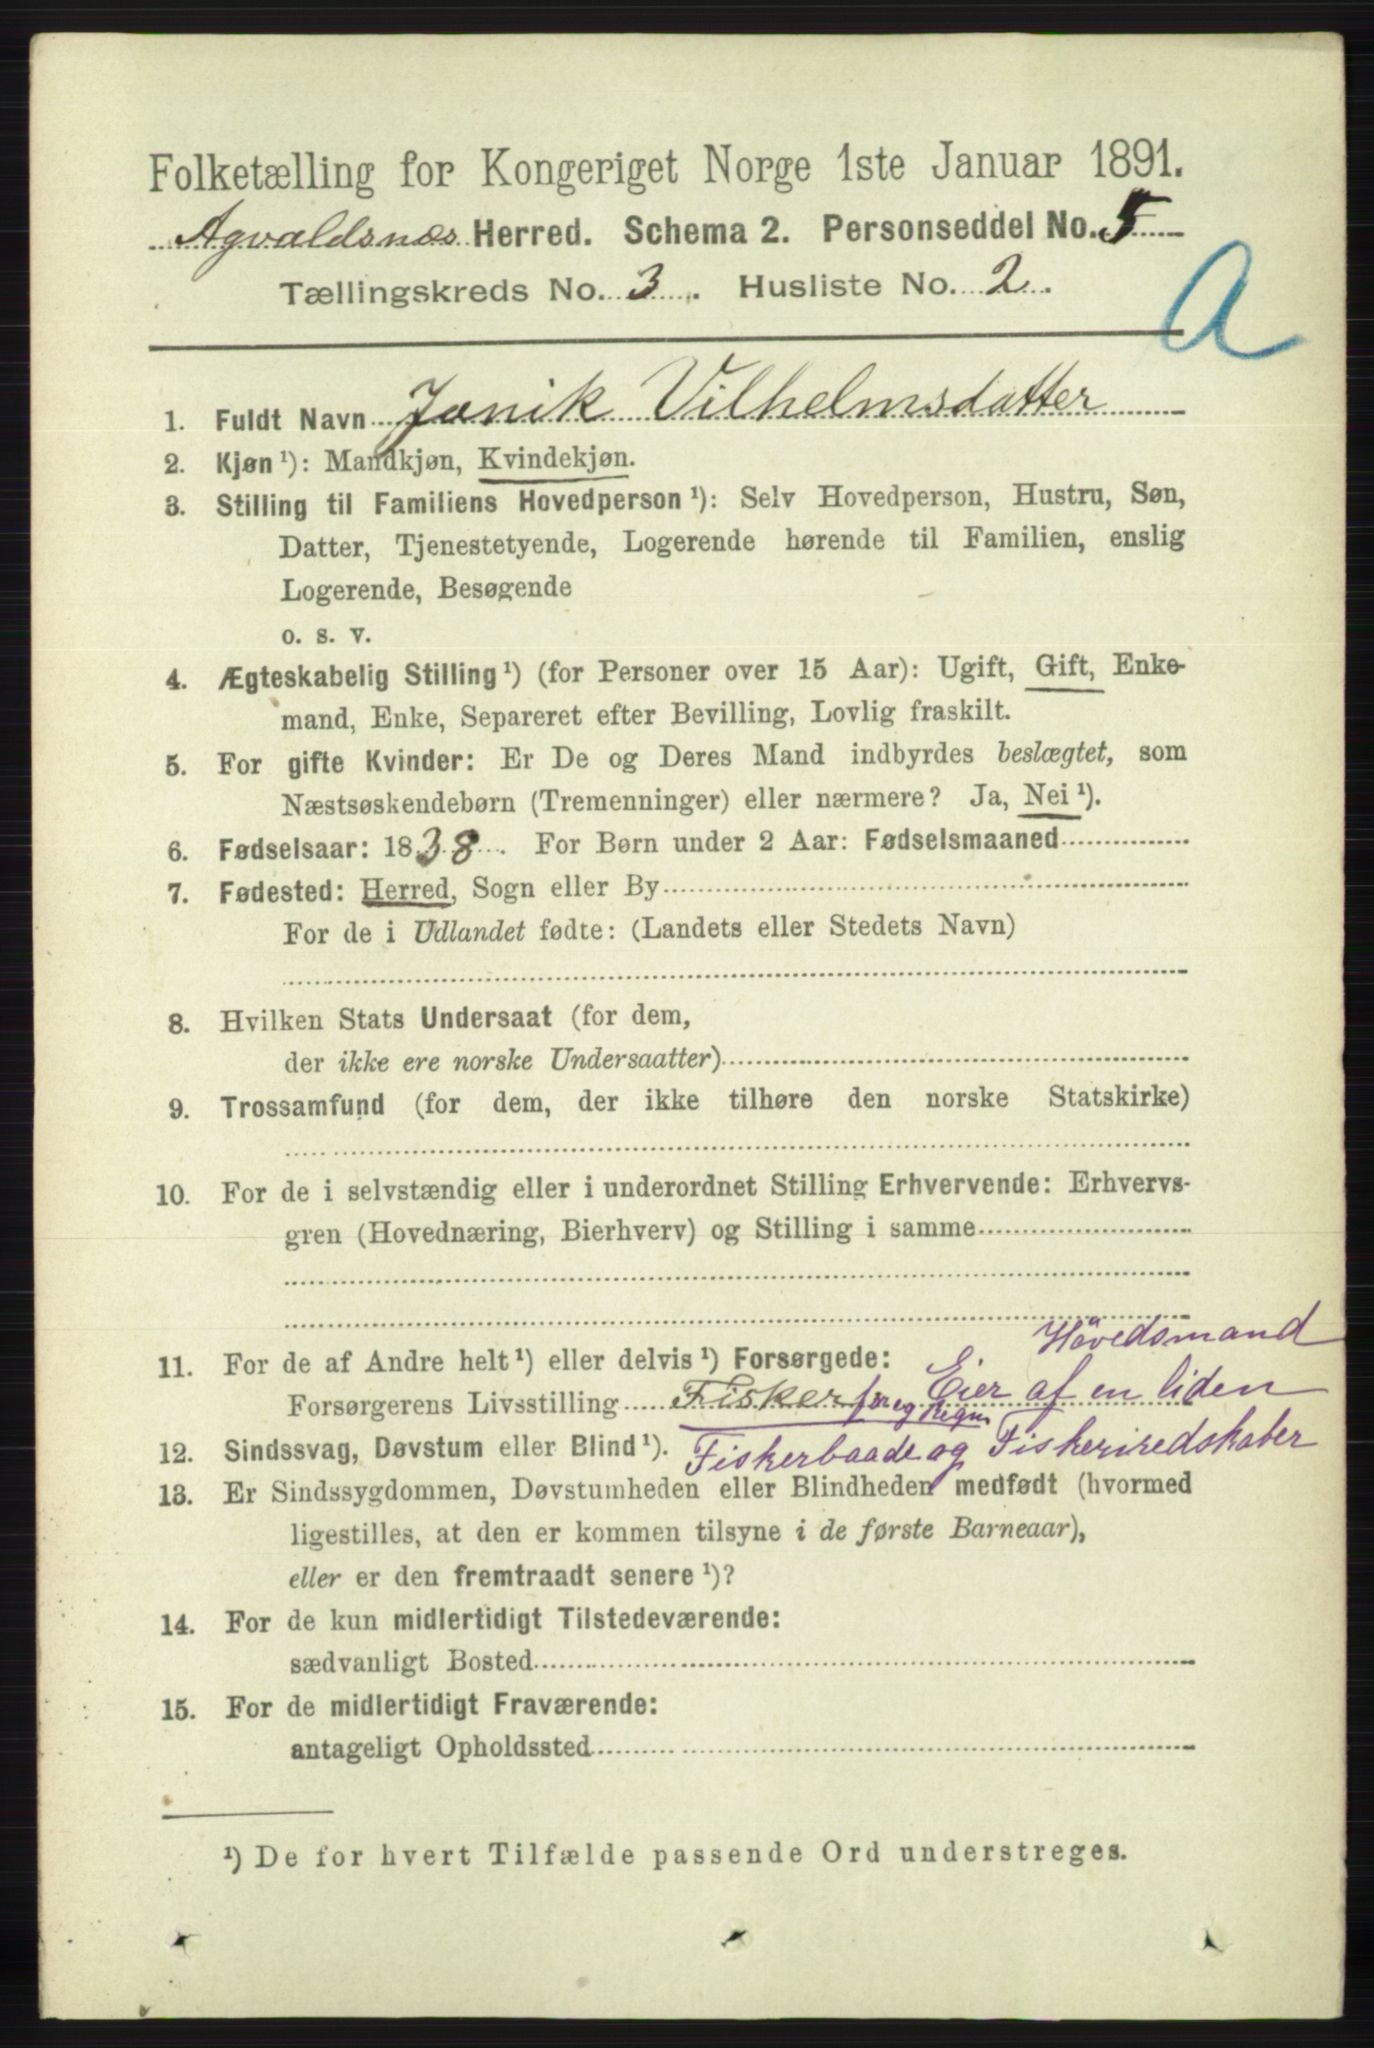 Folketælling for Kongeriget Norge 1ste Januar 1891.
Agvaldsnæs Herred. Schema 2. Personseddel No. 5
Tællingskreds No. 3. Husliste No. 2.
A
1. Fuldt Navn Janik Vilhelmsdatter
2. Kjøn ¹): Mandkjøn, Kvindekjøn.
3. Stilling til Familiens Hovedperson ¹): Selv Hovedperson, Hustru, Søn,
Datter, Tjenestetyende, Logerende hørende til Familien, enslig
Logerende, Besøgende
o. s. v.
4. Ægteskabelig Stilling ¹) (for Personer over 15 Aar): Ugift, Gift, Enke-
mand, Enke, Separeret efter Bevilling, Lovlig fraskilt.
5. For gifte Kvinder: Er De og Deres Mand indbyrdes beslægtet, som
Næstsøskendebørn (Tremenninger) eller nærmere? Ja, Nei ¹).
6. Fødselsaar: 1838. For Børn under 2 Aar: Fødselsmaaned
7. Fødested: Herred, Sogn eller By
For de i Udlandet fødte: (Landets eller Stedets Navn)
8. Hvilken Stats Undersaat (for dem,
der ikke ere norske Undersaatter)
9. Trossamfund (for dem, der ikke tilhøre den norske Statskirke)
10. For de i selvstændig eller i underordnet Stilling Erhvervende: Erhvervs-
gren (Hovednæring, Bierhverv) og Stilling i samme
Hövedsmand
11. For de af Andre helt ¹) eller delvis ¹) Forsørgede:
Forsørgerens Livsstilling Fisker for eg Regn. Eier af en liden
12. Sindssvag, Døvstum eller Blind ¹). Fiskerbaade og Fiskeriredskaber
13. Er Sindssygdommen, Døvstumheden eller Blindheden medfødt (hvormed
ligestilles, at den er kommen tilsyne i de første Barneaar),
eller er den fremtraadt senere ¹)?
14. For de kun midlertidigt Tilstedeværende:
sædvanligt Bosted
15. For de midlertidigt Fraværende:
antageligt Opholdssted
¹) De for hvert Tilfælde passende Ord understreges.